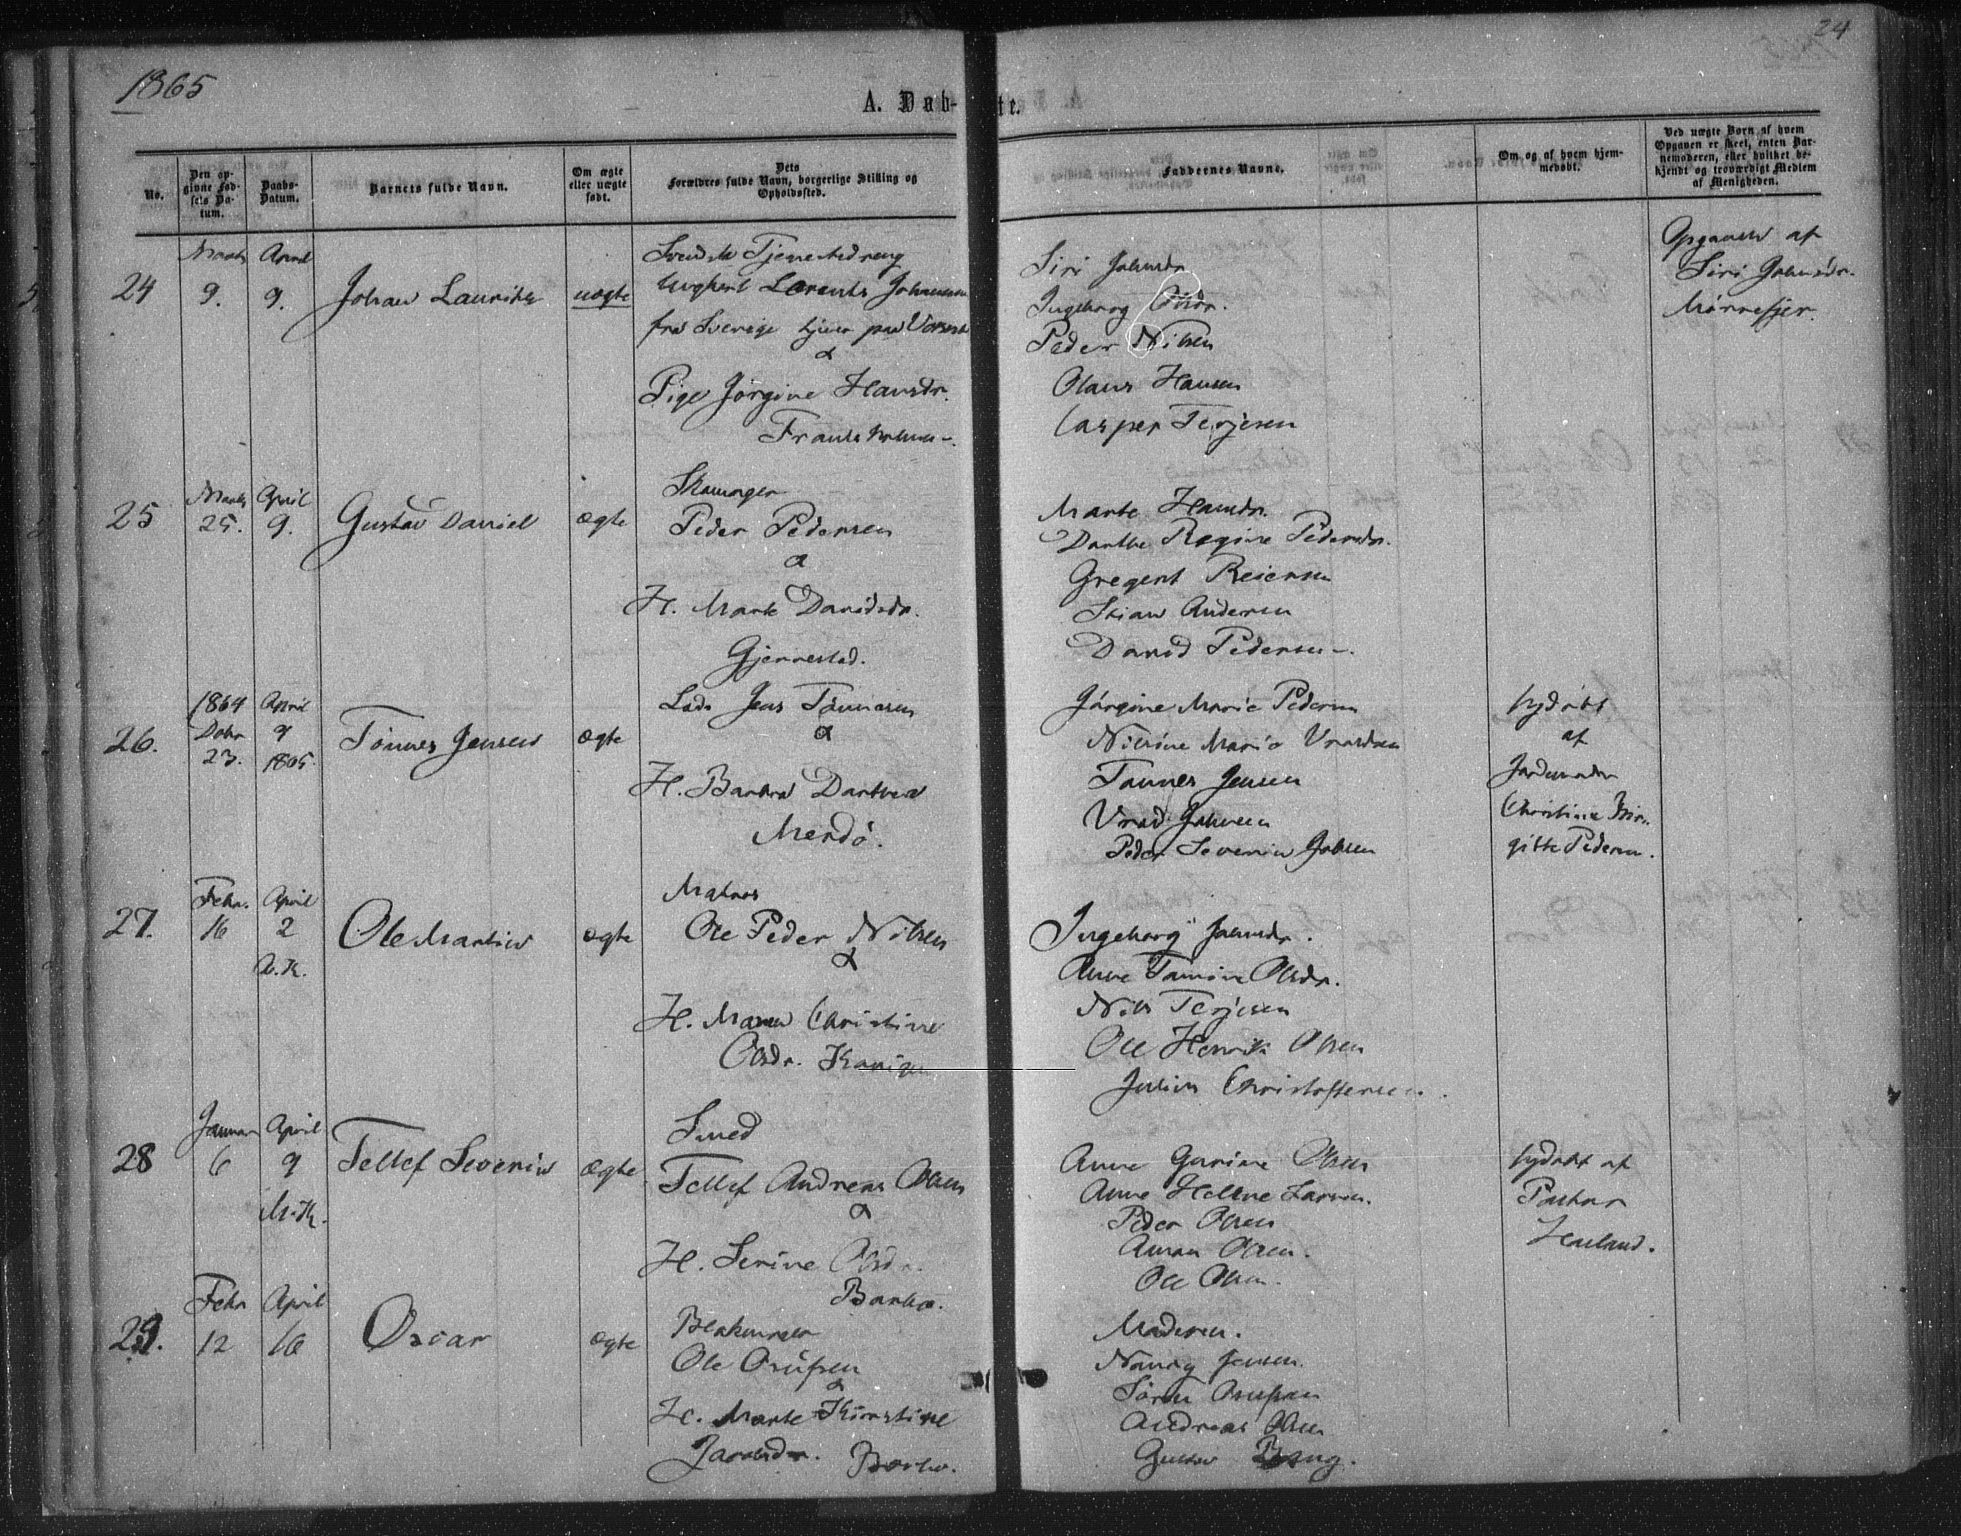 24
1865
A. Døb-te.
No.
Den opgivne Fødsels Datum.
Daabs-Datum.
Barnets fulde Navn.
Om ægte eller uægte født.
Dets Forældres fulde Navn, borgerlige Stilling og Opholdssted.
Faddernes Navne.
Om og af hvem hjemmedøbt.
Ved uægte Børn af hvem Opgaven er skeet, enten Barnemoderen, eller hvilket bekjendt og troværdigt Medlem af Menigheden.
24
Marts 9.
April 9.
Johan Lauritz
uægte
Svensk Tjenestedreng
Lorents Johansen
fra Sverige tjener paa
&
Pige Jørgine Hansdr.
Siri Johnsdr
Ingeborg Olsdr.
Peder Nilsen
Olaus Hansen
Casper Terjesen
Opgaven af
Siri Johnsdr.
Mørnefjer.
25
Marts 25.
April 9.
Gustav Daniel
ægte
Peder Pedersen
&
H. Marte Davidsdr.
Gjennestad.
Marte Hansdr.
Dorthe Regine Pedersdr.
Gregert Reiersen
Stian Andersen
David Pedersen
26.
1864 Debr 23.
April 9 1865.
Tønnes Jensen
ægte
Lods Jens Tønnesen
&
H. Barbra Dorthea
Merdø.
Jørgine Marie Pedersen
Nilsine Marie
Tønnes Jensen
Vrad Johnsen
Peder Severin Jobsen
hjdøbt
af
Jordemoder
Christine Bir-
gitte Pedersen.
27.
Febr. 16
April 2
A.K.
Ole Martin
ægte
Matros
Ole Peder Nilsen
&
H. Maren Christine
Olsdr.
Ingeborg Johnsdr.
Anne Tomine Olsdr.
Nils Terjesen
Ole Henrik Olsen
Julius Christoffersen
28
Januar 6
April 9
Tellef Severin
ægte
Smed
Tellef Andreas Olsen
&
H. Serine Olsdr.
Barbo.
Anne Gurine Olsen
Anne Helene Larsen.
Peder Olsen
Aanon Olsen.
Ole Olsen.
hjdøbt af
Pastor
29.
Febr 12
April 16
Oscar
ægte
Ole
&
H. Marte Kirstine
Barbo.
Moderen.
Nancy Jensen.
Søren
Andreas Olsen
Gustav Bang.